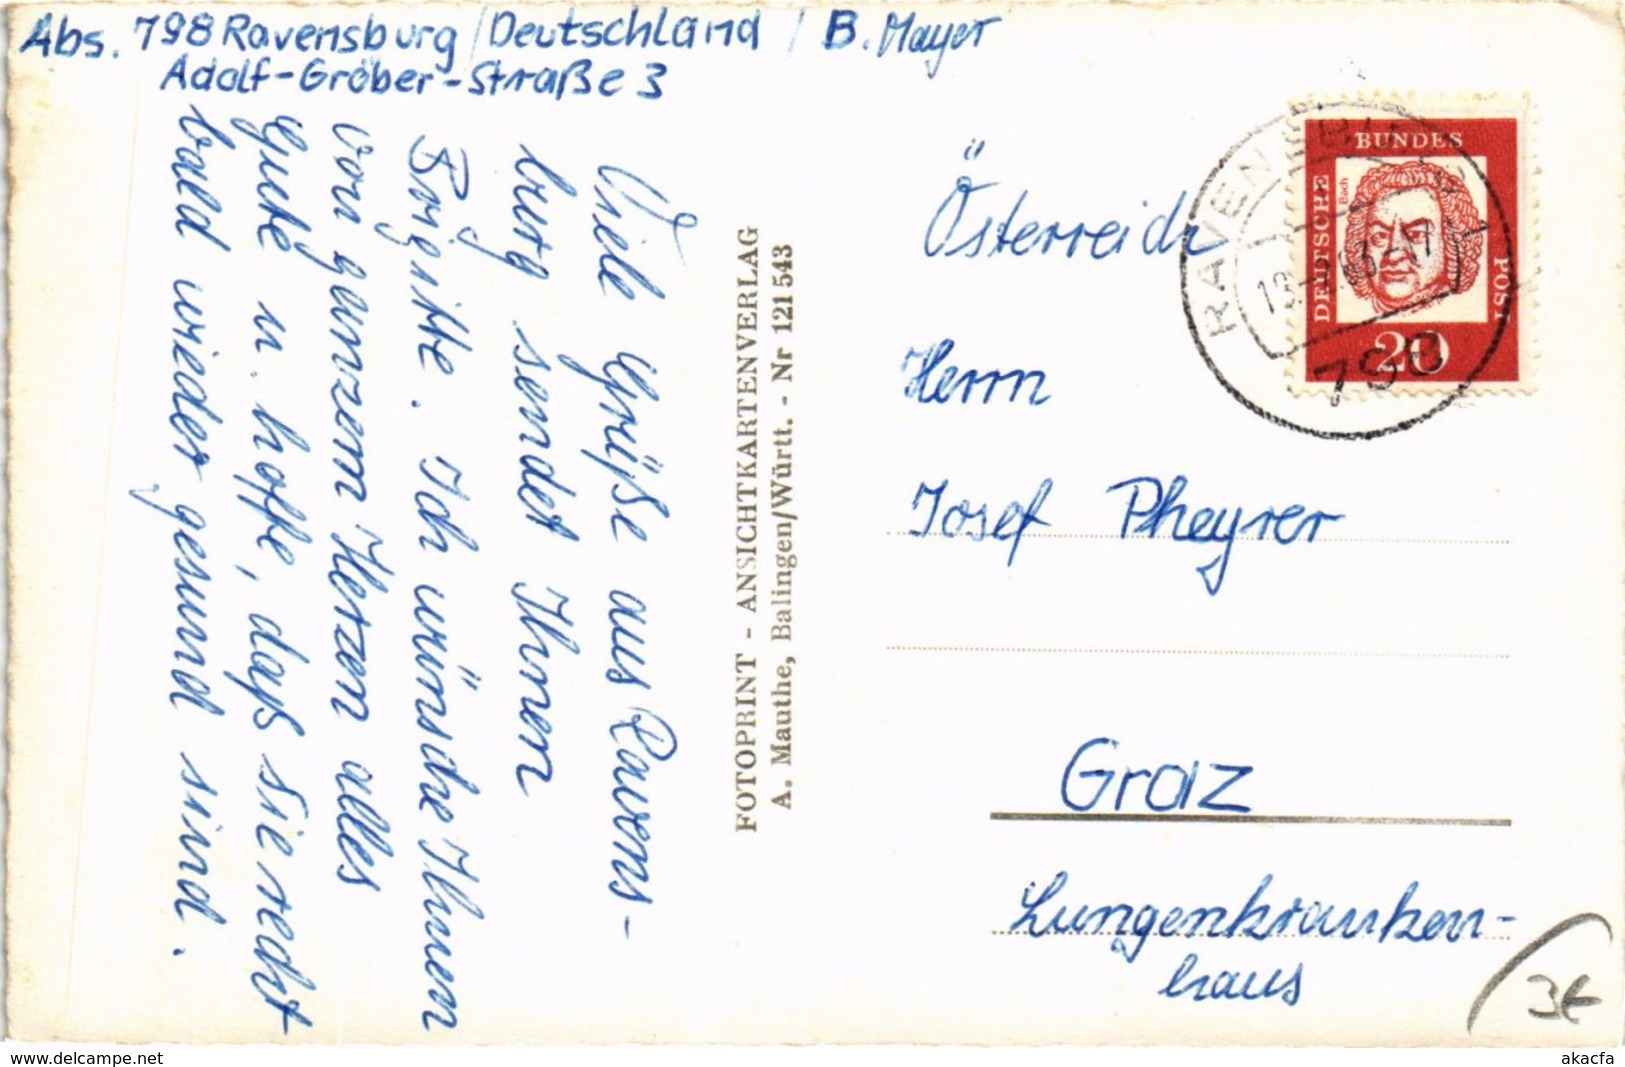 Abs. 798 Ravensburg / Deutschland / B. Mayer
Adolf-Gröber-Straße 3
Viele Grüße aus Ravens-
burg sendet Ihnen
Brigitte. Ich wünsche Ihnen
von ganzem Herzen alles
Gute u. hoffe, daß Sie recht
bald wieder gesund sind.
FOTOPRINT - ANSICHTKARTENVERLAG
A. Mauthe, Balingen/Württ. - Nr 121 543
DEUTSCHE
BUNDES
POST
Bach
20
RAVENSBURG 1
798
Österreich
Herrn
Josef Pheyrer
Graz
Lungenkranken-
haus
3€
www.delcampe.net
akacfa